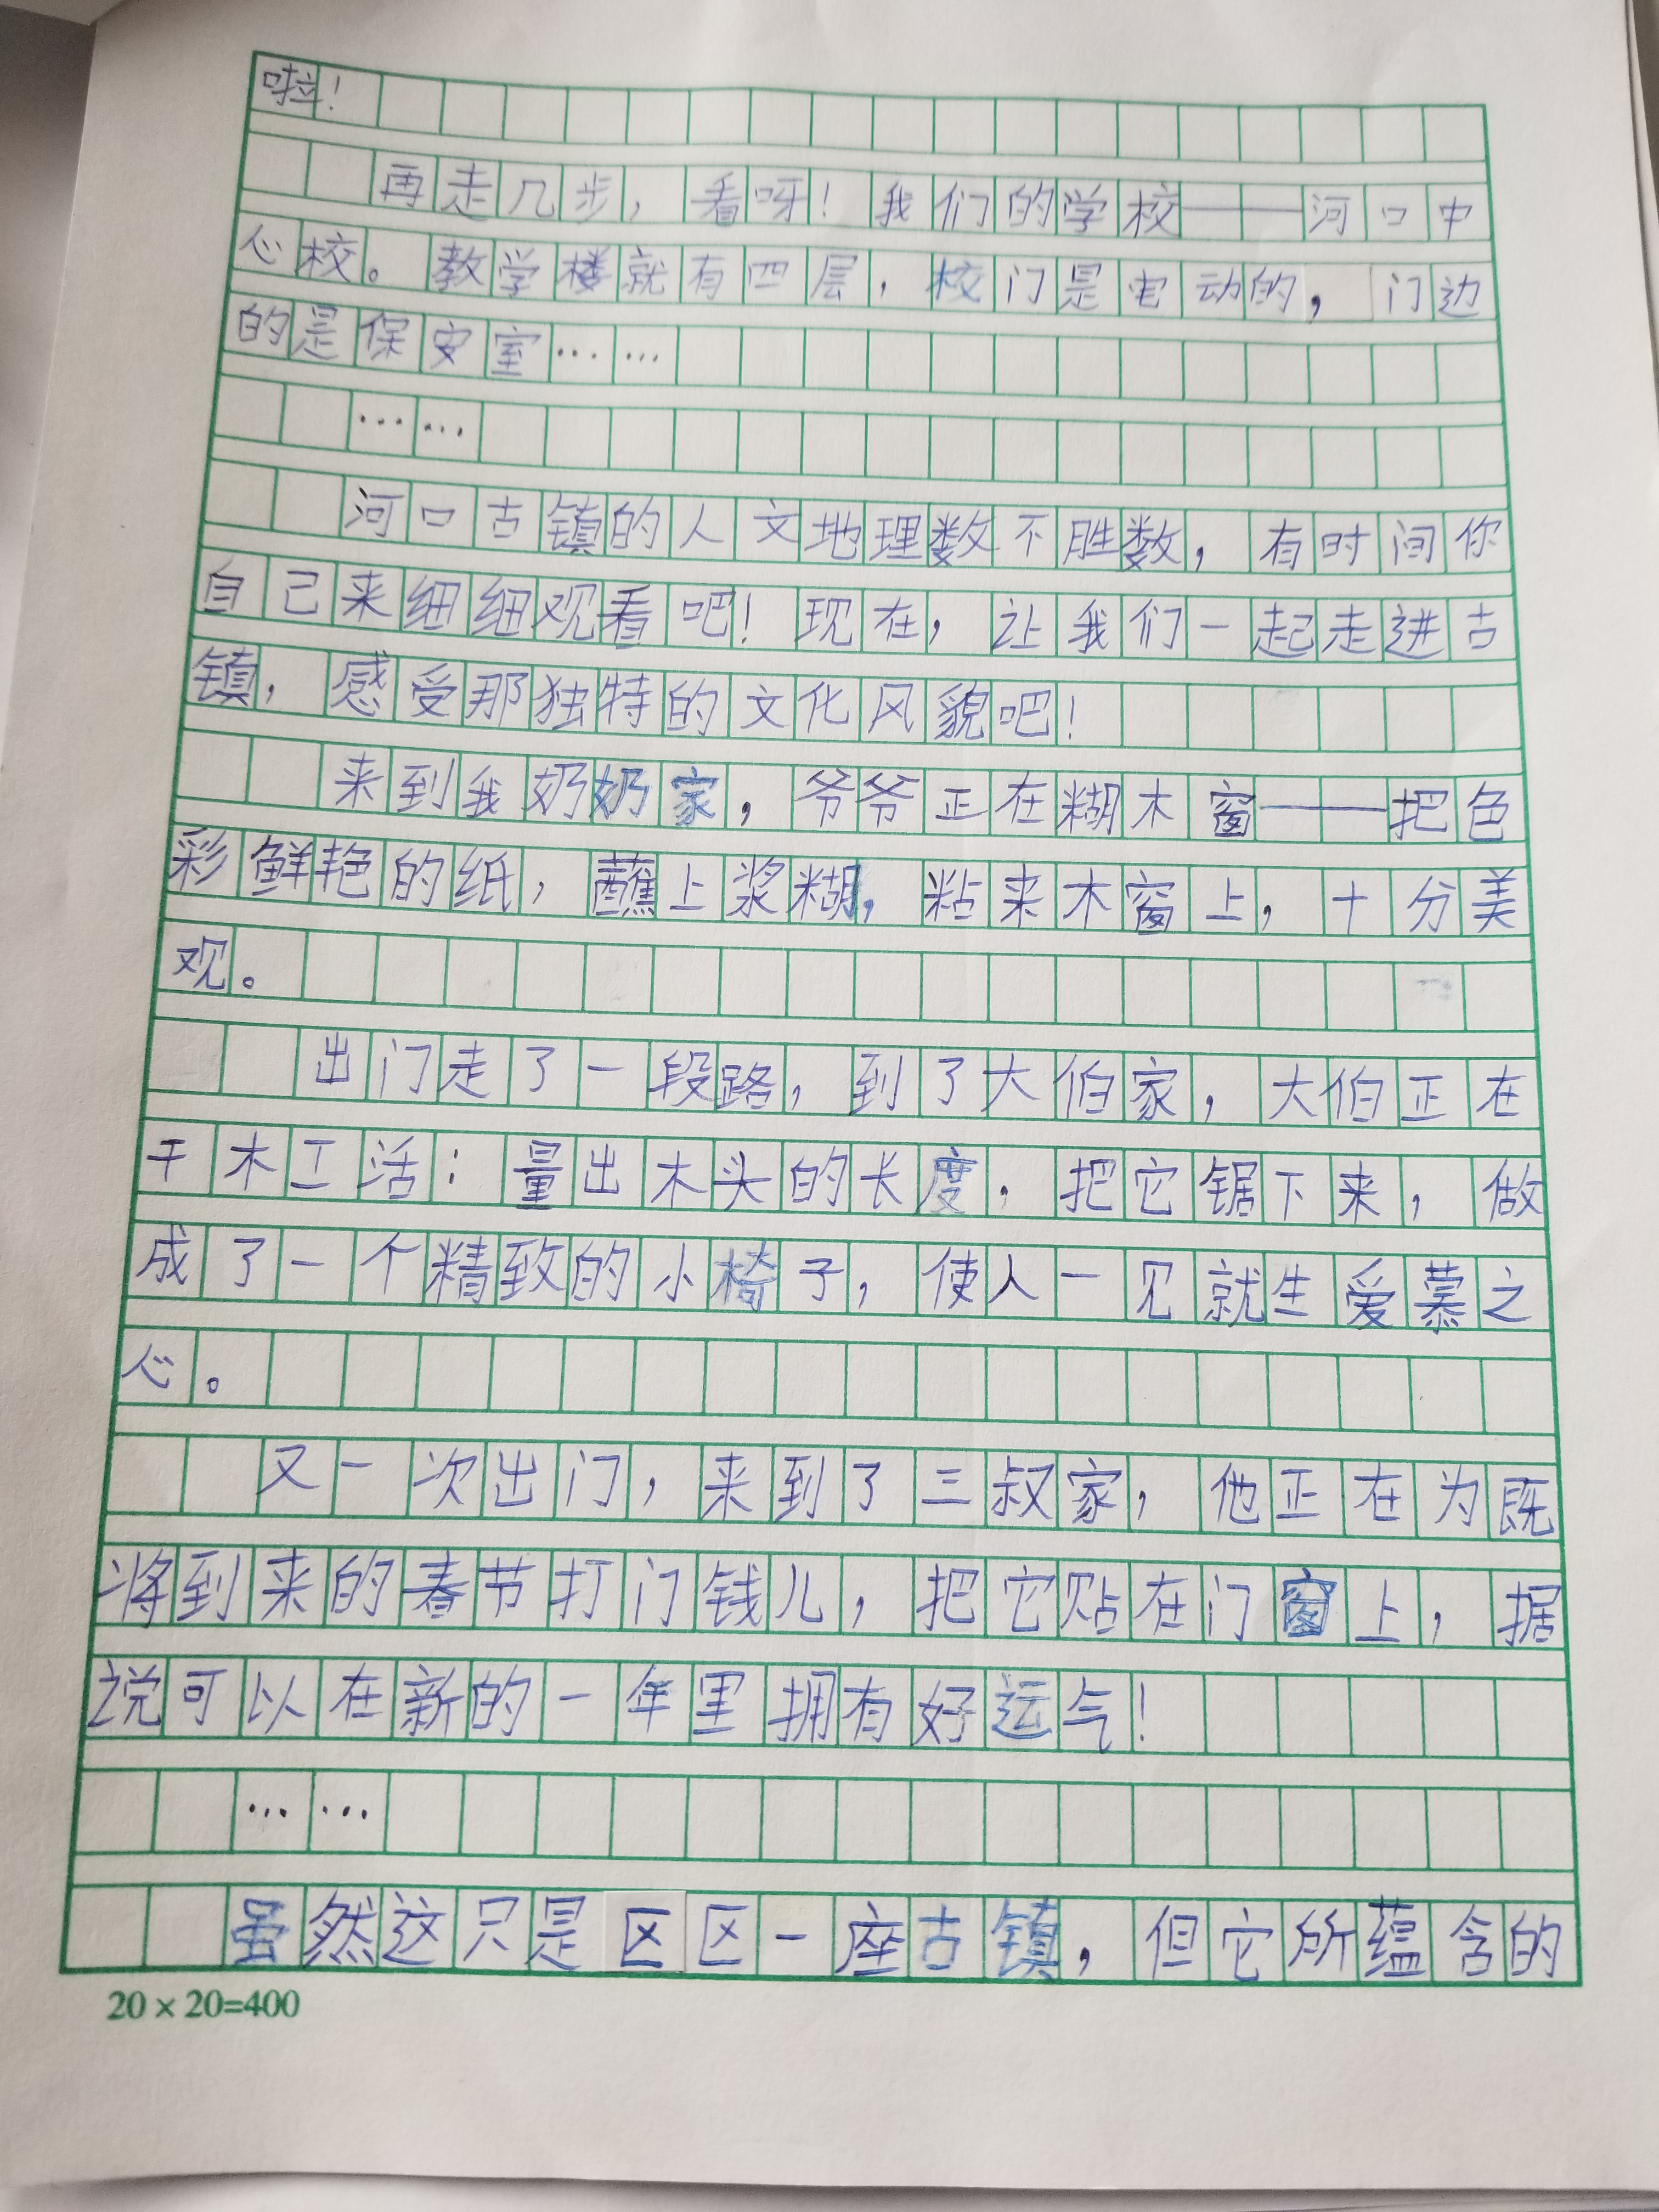 啦！
再走几步，看呀！我们的学校——河口中
心校。教学楼就有四层，校门是电动的，门边
的是保安室……
……
河口古镇的人文地理数不胜数，有时间你
自己来细细观看吧！现在，让我们一起走进古
镇，感受那独特的文化风貌吧！
来到我奶奶家，爷爷正在糊木窗——把色
彩鲜艳的纸，蘸上浆糊，粘来木窗上，十分美
观。
出门走了一段路，到了大伯家，大伯正在
干木工活：量出木头的长度，把它锯下来，做
成了一个精致的小椅子，使人一见就生爱慕之
心。
又一次出门，来到了三叔家，他正在为既
将到来的春节打门钱儿，把它贴在门窗上，据
说可以在新的一年里拥有好运气！
……
虽然这只是区区一座古镇，但它所蕴含的
20×20=400